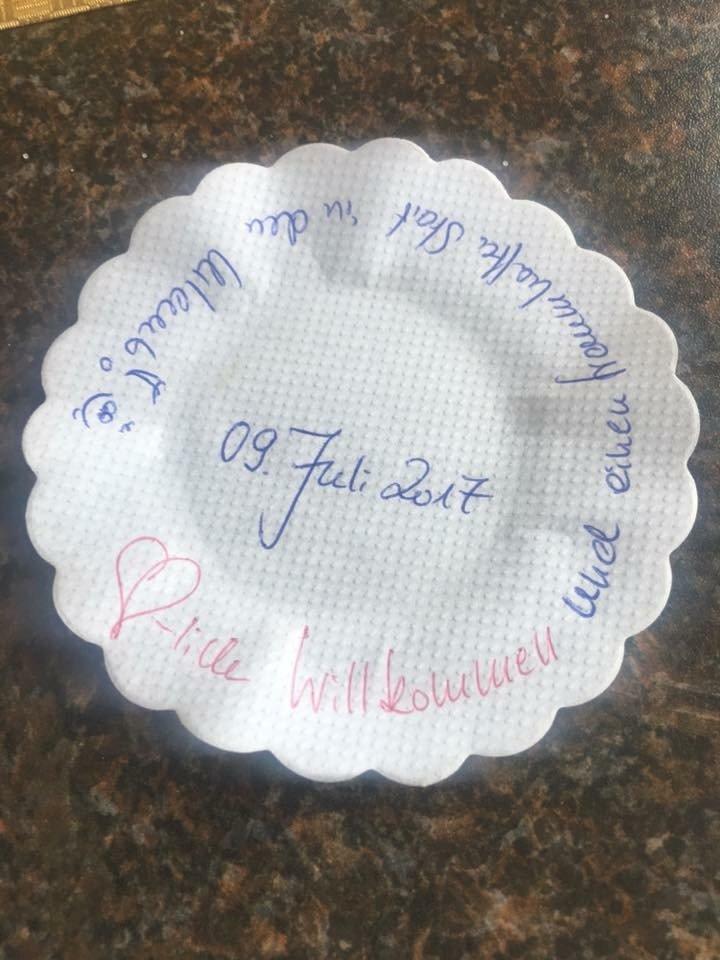 ♡-lich Willkommen
und einen traumhaften Start in den Urlaub! ☺
09. Juli 2017